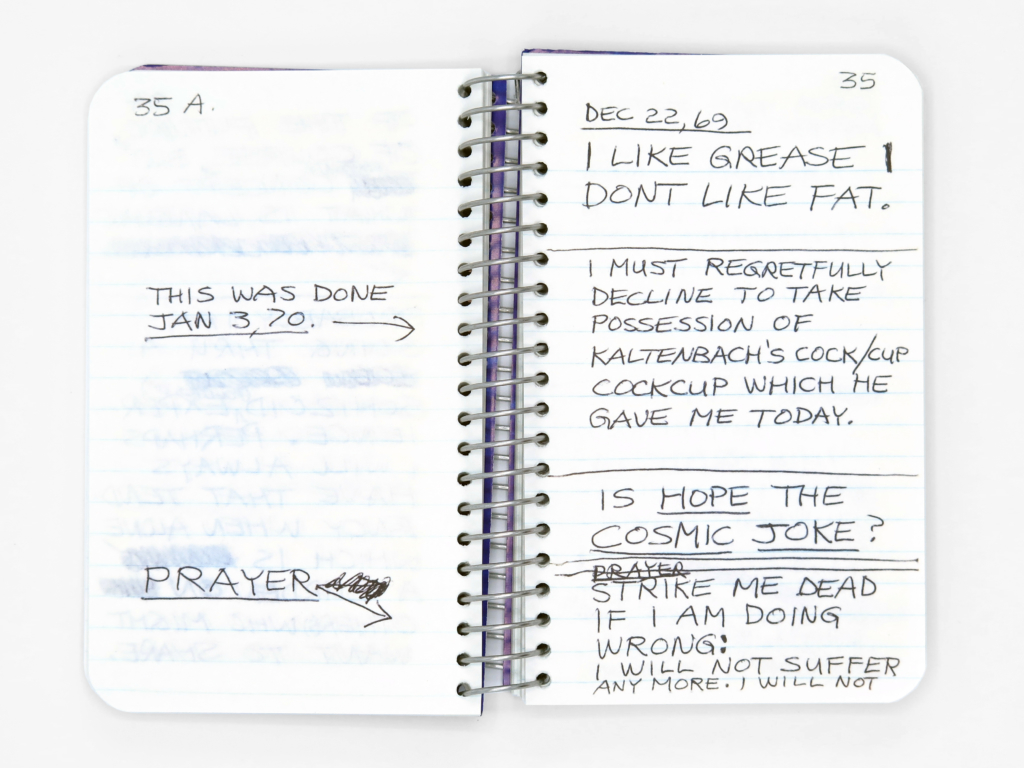 35 A.
THIS WAS DONE
JAN 3,70. →
PRAYER
35
DEC 22,69
I LIKE GREASE I
DONT LIKE FAT.
I MUST REGRETFULLY
DECLINE TO TAKE
POSSESSION OF
KALTENBACH'S COCK/CUP
COCKCUP WHICH HE
GAVE ME TODAY.
IS HOPE THE
COSMIC JOKE?
PRAYER
STRIKE ME DEAD
IF I AM DOING
WRONG:
I WILL NOT SUFFER
ANY MORE. I WILL NOT